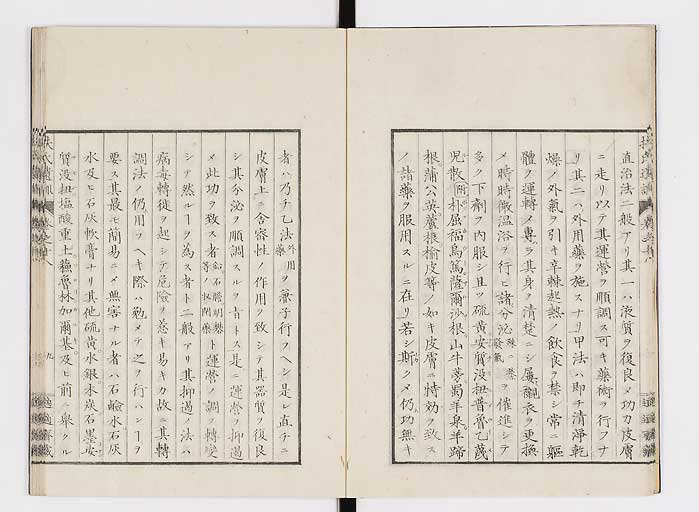 直治法二般アリ其一ハ液質ヲ復良メ功力皮膚
ニ走リ以テ其運営ヲ順調ス可キ薬術ヲ行フナ
リ其二ハ外用薬ヲ施スナリ甲法ハ即チ清浄乾
燥ノ外氣ヲ引キ辛棘起熱ノ飲食ヲ禁シ常ニ軀
體ヲ運轉メ專ラ其身ヲ清楚ニシ屢襯衣ヲ更換
メ時時微温浴ヲ行ヒ諸分泌殊ニ蒸發氣ヲ催進シテ
多ク下劑ヲ内服シ且ツ硫黄安質没扭普魯乙蔑
児散朴屈福烏篤薩爾沙根山牛蒡蜀羊泉羊蹄
根蒲公英蘆根榆皮等ノ如キ皮膚ニ特効ヲ致ス
ノ諸薬ヲ服用スルニ在リ若シ斯クメ仍功無キ
者ハ乃チ乙法外用薬ヲ兼子行フヘシ是レ直チニ
皮膚上ニ含容性ノ作用ヲ致シテ其器質ヲ復良
シ其分泌ヲ順調スルヲ旨トス是ノ運營ヲ抑遏
メ此功ヲ致ス者鉛石膽明礬等ノ收閉藥ト運營ノ調ヲ轉變
シテ然ルヿヲ為ス者ト二般アリ其抑遏ノ法ハ
病毒轉徙ヲ起シテ危險ヲ惹キ易キカ故ニ其轉
調法ノ仍用フヘキ際ハ勉メテ之ヲ行ハンヿヲ
要ス其最モ簡易ニメ無害ナル者ハ石鹼水石灰
水及ヒ石灰軟膏ナリ其他硫黄水銀末炭石墨安
質没扭塩酸重土藕魯林加爾基及ヒ前ニ舉クル
九